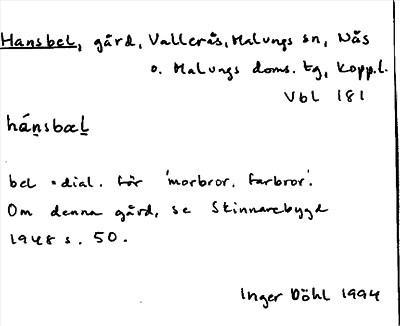 Hansbel, gård, Vallerås, Malungs sn, Nås
o. Malungs doms. tg, Koppl.
Vbl 181
hánsbæl
bel = dial. för 'morbror. farbror'.
Om denna gård, se Skinnarebygd
1948 s. 50.
Inger Döhl 1994